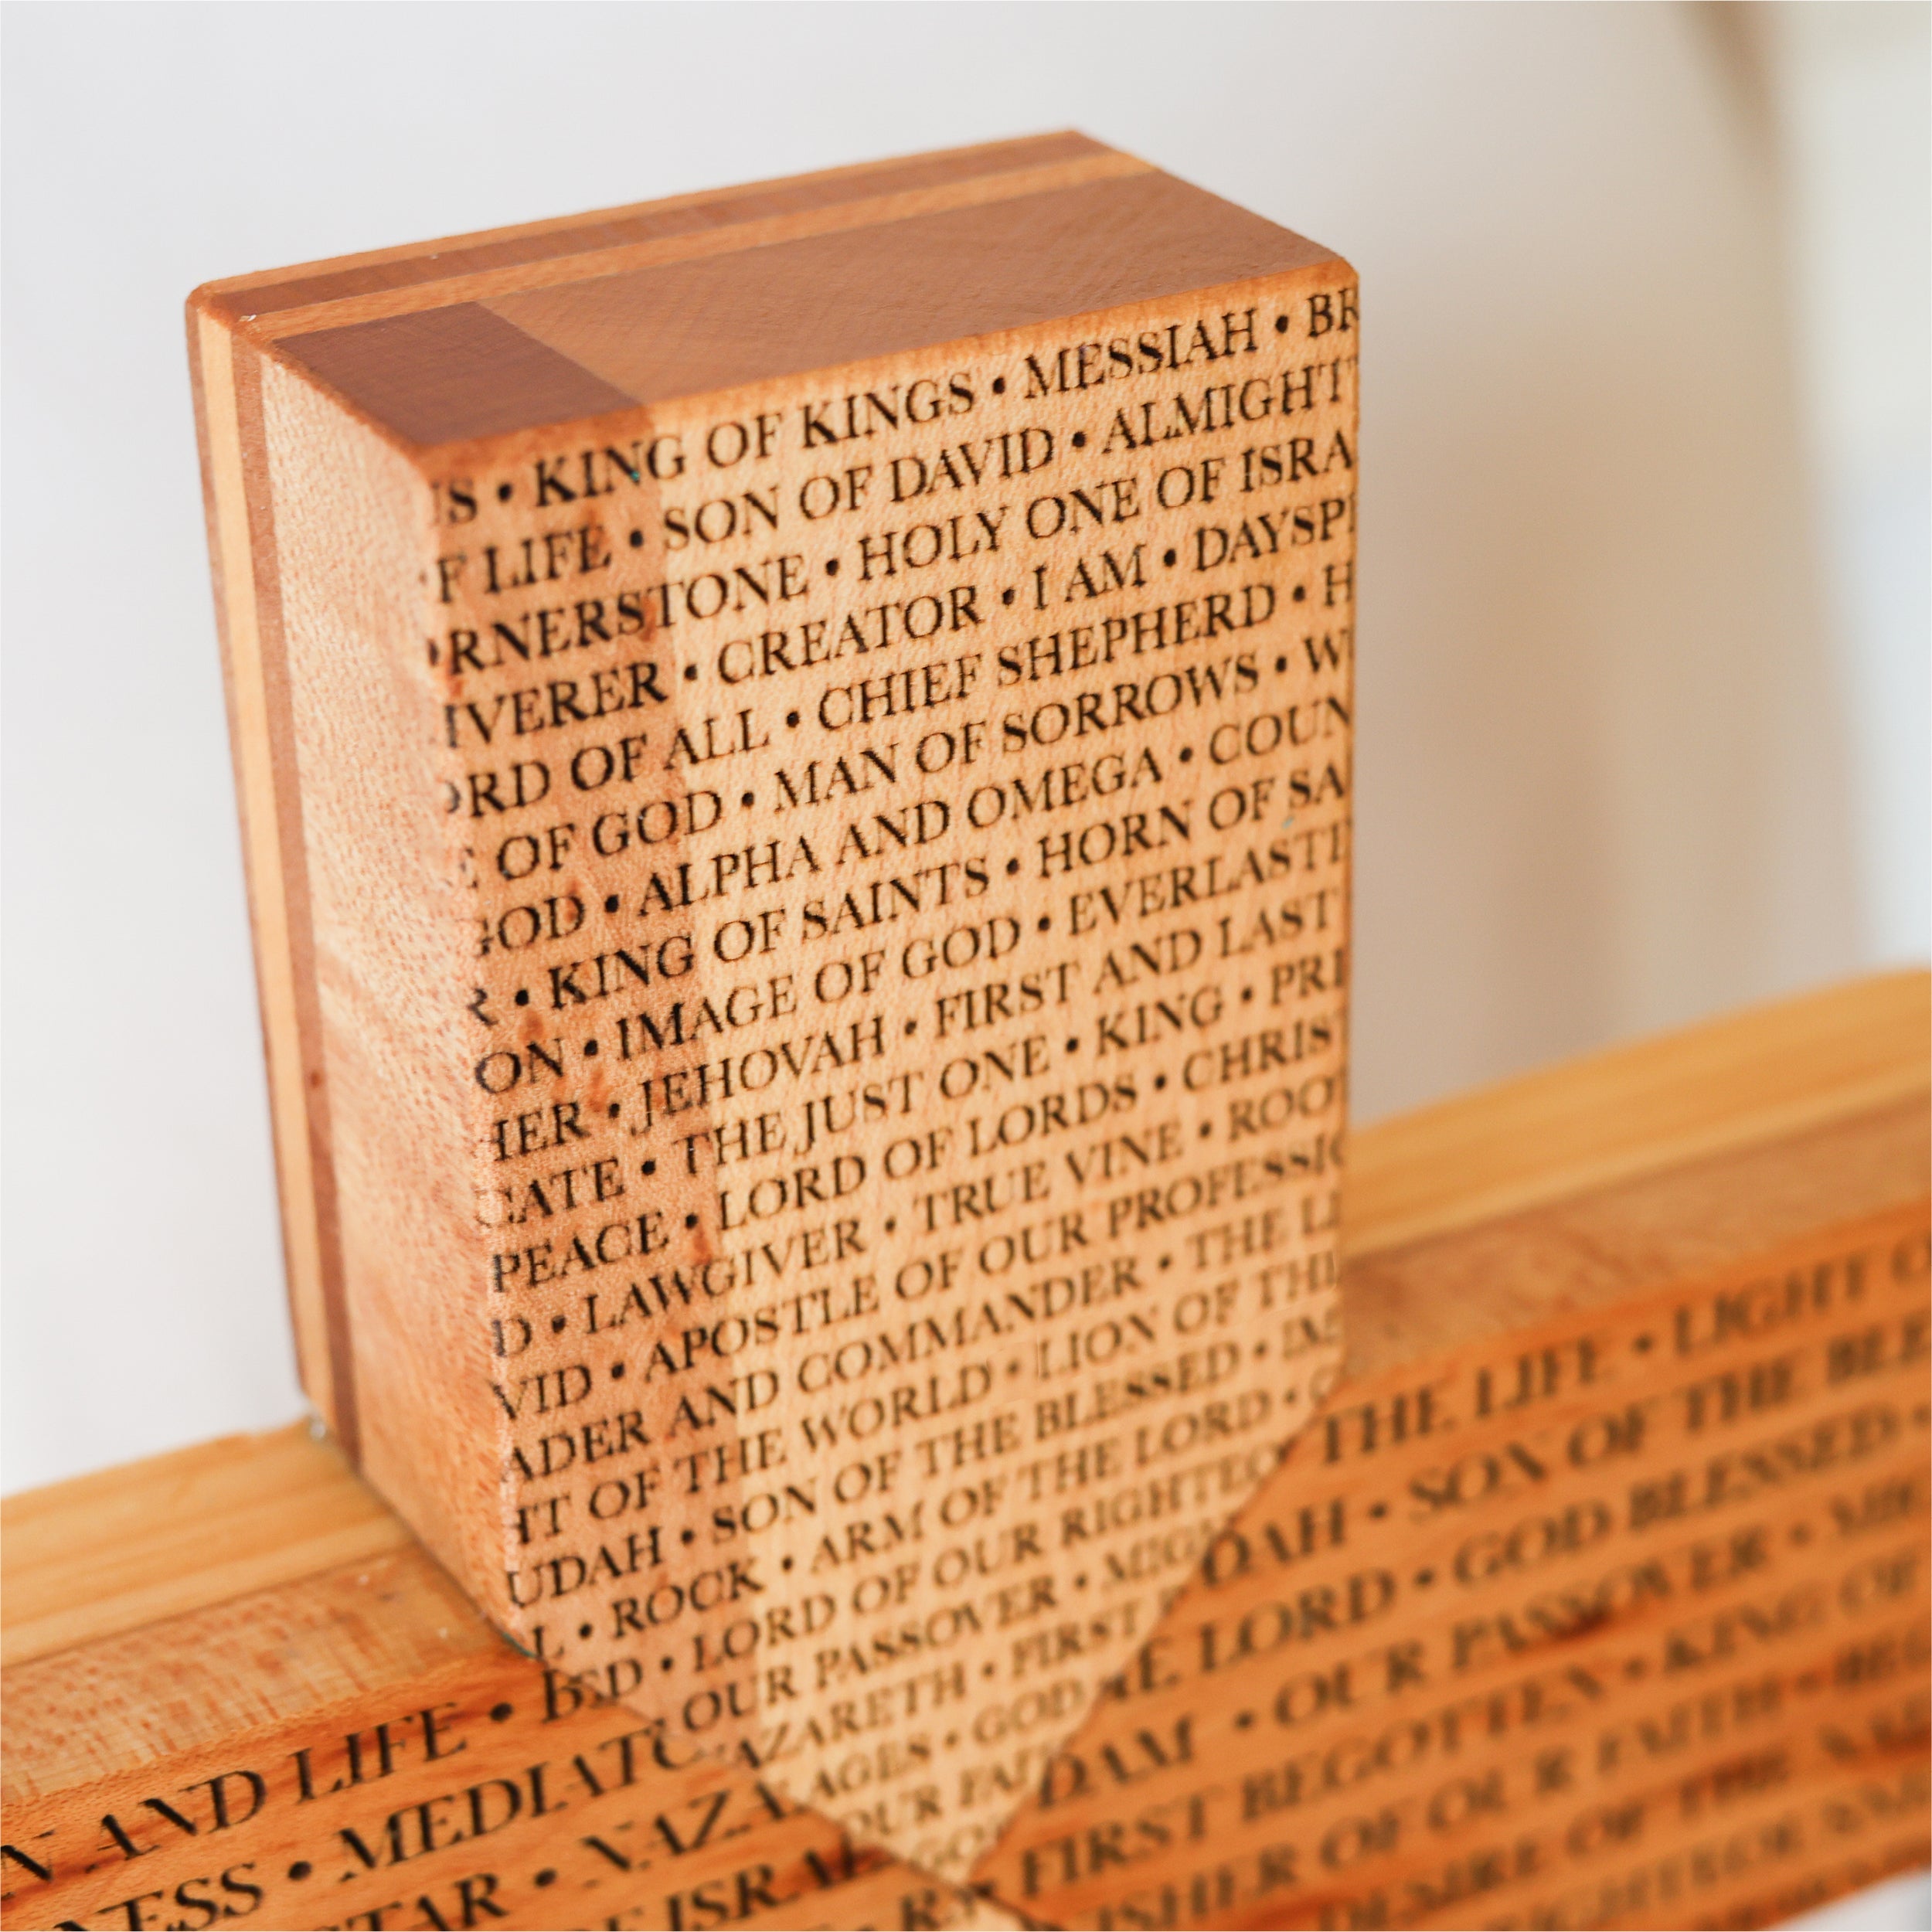 • KING OF KINGS • MESSIAH •
LIFE • SON OF DAVID • ALMIGHT
RNERSTONE • HOLY ONE OF ISRA
IVERER • CREATOR • I AM • DAYSP
ORD OF ALL • CHIEF SHEPHERD • H
OF GOD • MAN OF SORROWS • W
GOD • ALPHA AND OMEGA • COUN
R • KING OF SAINTS • HORN OF SA
ON • IMAGE OF GOD • EVERLASTI
HER • JEHOVAH • FIRST AND LAST
CATE • THE JUST ONE • KING • PRI
PEACE • LORD OF LORDS • CHRIST
D • LAWGIVER • TRUE VINE • ROO
VID • APOSTLE OF OUR PROFESSIO
ADER AND COMMANDER • THE LI
HT OF THE WORLD • LION OF THE
UDAH • SON OF THE BLESSED •
L • ROCK • ARM OF THE LORD •
• LORD OF OUR RIGHTEO
OUR PASSOVER •
AZARETH • FIRST
AGES • GOD
OUR FAI
N AND LIFE •
NESS • MEDIATO
TAR • NAZA
OF ISRA
THE LIFE • LIGHT O
DAH • SON OF THE BLE
HE LORD • GOD BLESSED
DAM • OUR PASSOVER •
FIRST BEGOTTEN • KING OF
ISHER OF OUR FAITH •
DESIRE OF THE NA